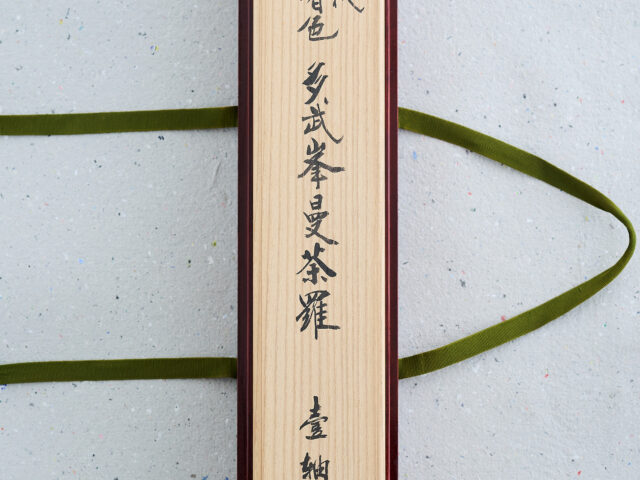 着色 多武峯曼荼羅 壹軸